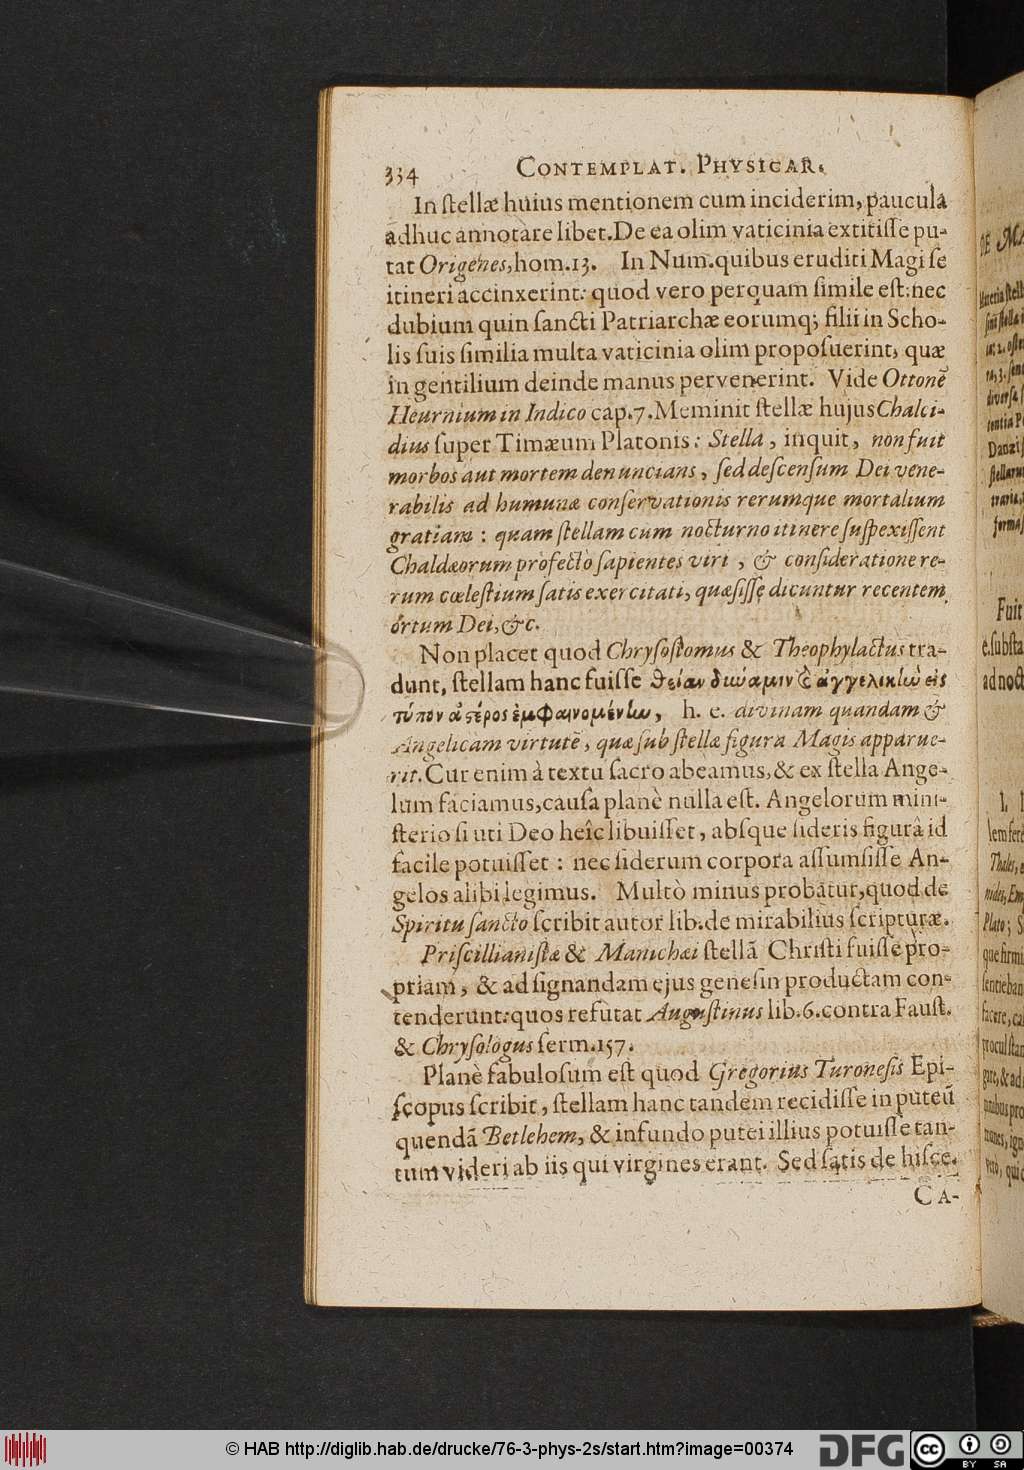 334 CONTEMPLAT. PHYSICAR.
In stellæ huius mentionem cum inciderim, paucula
adhuc annotare libet. De ea olim vaticinia extitisse pu-
tat Origenes, hom. 13. In Num. quibus eruditi Magi se
itineri accinxerint: quod vero perquam simile est: nec
dubium quin sancti Patriarchæ eorumq; filii in Scho-
lis suis similia multa vaticinia olim proposuerint, quæ
in gentilium deinde manus pervenerint. Vide Ottonē
Heurnium in Indico cap. 7. Meminit stellæ hujus Chalci-
dius super Timæum Platonis: Stella, inquit, non fuit
morbos aut mortem denuncians, sed descensum Dei vene-
rabilis ad humunæ conservationis rerumque mortalium
gratiam: quam stellam cum nocturno itinere suspexissent
Chaldæorum profectò sapientes viri, & consideratione re-
rum cœlestium satis exercitati, quæsisse dicuntur recentem
ortum Dei, &c.
Non placet quod Chrysostomus & Theophylactus tra-
dunt, stellam hanc fuisse θείαν δύναμιν ϗ ἀγγελικὴν εἰς
τύπον ἀστέρος ἐμφαινομένην, h. e. divinam quandam &
Angelicam virtutē, quæ sub stellæ figura Magis apparue-
rit. Cur enim à textu sacro abeamus, & ex stella Ange-
lum faciamus, causa planè nulla est. Angelorum mini-
sterio si uti Deo heîc libuisset, absque sideris figurâ id
facile potuisset: nec siderum corpora assumsisse An-
gelos alibi legimus. Multò minus probatur, quod de
Spiritu sancto scribit autor lib. de mirabilius scripturæ.
Priscillianistæ & Manichæi stellā Christi fuisse pro-
priam, & ad signandam ejus genesin productam con-
tenderunt: quos refutat Augustinus lib. 6. contra Faust.
& Chrysologus serm. 157.
Planè fabulosum est quod Gregorius Turonesis Epi-
scopus scribit, stellam hanc tandem recidisse in puteū
quendā Betlehem, & in fundo putei illius potuisse tan-
tum videri ab iis qui virgines erant. Sed satis de hisce.
CA-
DE MA
Fuit
ad noct
Thales,
Plato; S
© HAB http://diglib.hab.de/drucke/76-3-phys-2s/start.htm?image=00374
DFG
cc
BY SA